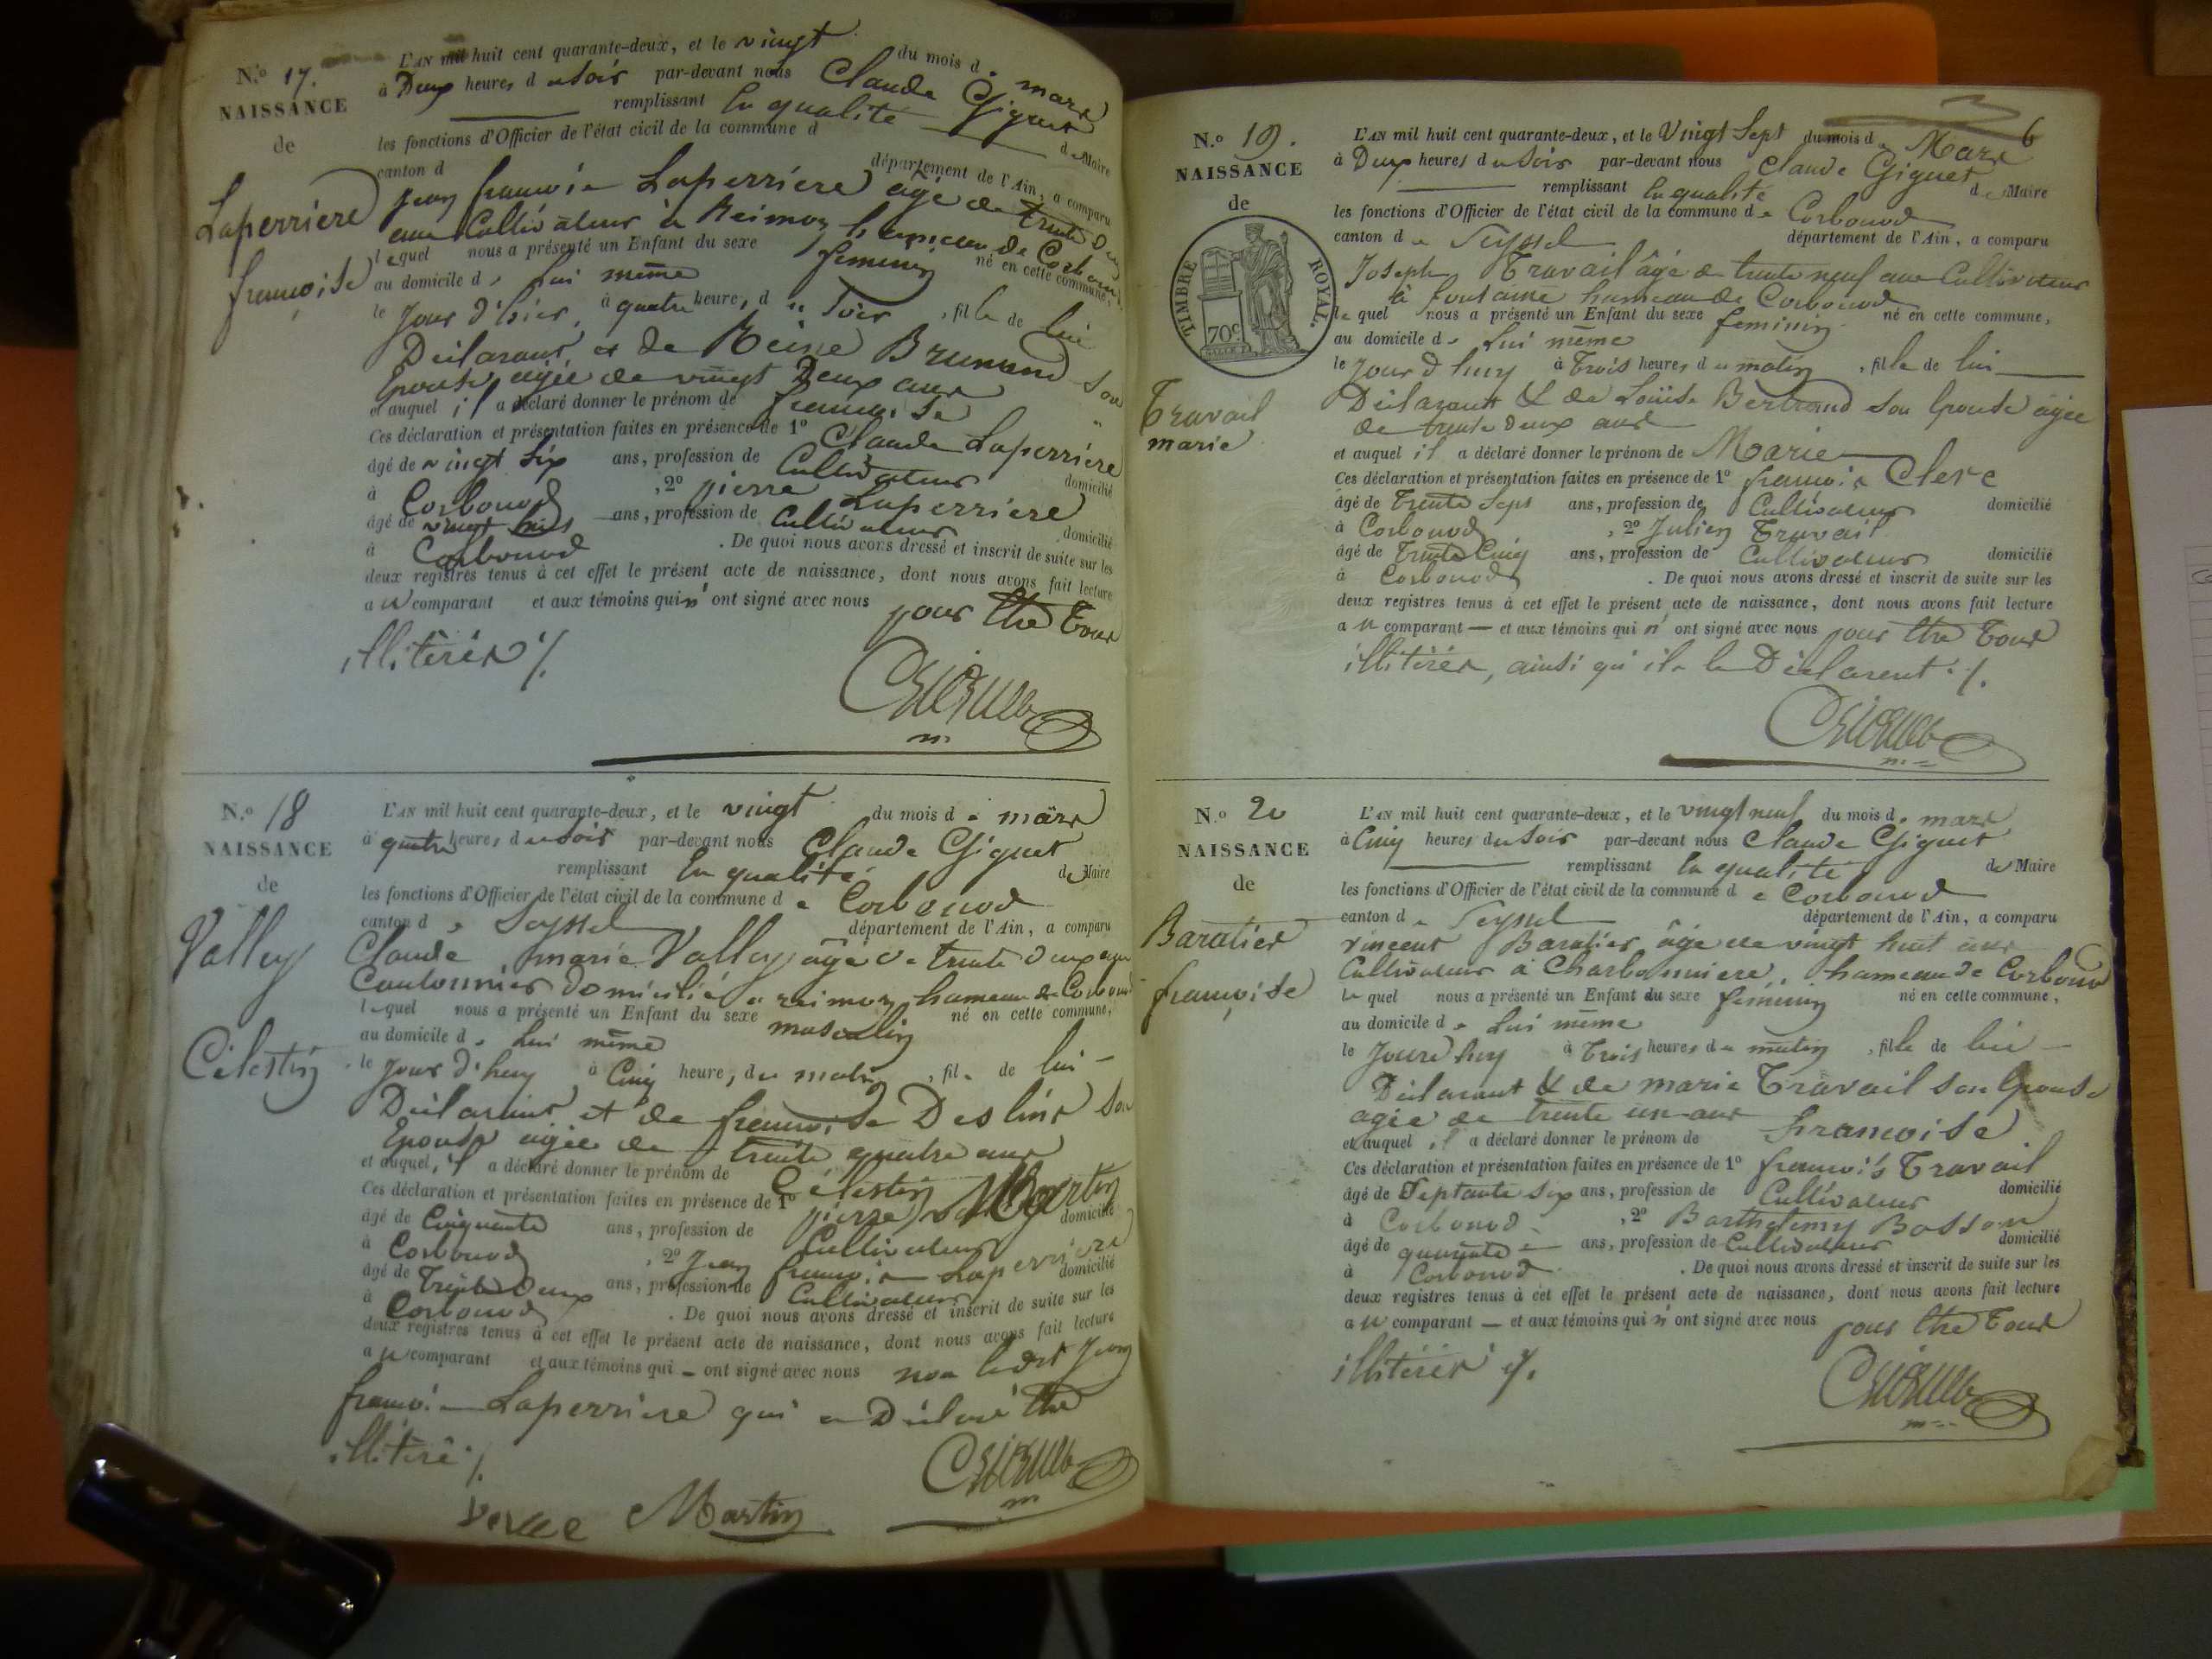 N.º 17.
NAISSANCE
de
Laperriere
françoise
L'AN mil huit cent quarante-deux, et le vingt du mois d e mars
à Deux heures d u soir par-devant nous Claude Giguet
remplissant En qualité d e Maire
les fonctions d'Officier de l'état civil de la commune d
canton d département de l'Ain, a comparu
jean françois Laperriere âgé de trente deux
ans Cultivateur à Reimon hameau de Corbonod
lequel nous a présenté un Enfant du sexe feminin né en cette commune,
au domicile d e lui même
le jour d'hier, à quatre heures d u soir, fille de lui
Déclarant, et de Reine Brunand son
Epouse, agée de vingt Deux ans
et auquel il a déclaré donner le prénom de françoise
Ces déclaration et présentation faites en présence de 1º Claude Laperriere
âgé de vingt six ans, profession de Cultivateur domicilié
à Corbonod, 2º pierre Laperriere
âgé de vingt ans, profession de Cultivateur domicilié
à Corbonod. De quoi nous avons dressé et inscrit de suite sur les
deux registres tenus à cet effet le présent acte de naissance, dont nous avons fait lecture
au comparant et aux témoins qui n' ont signé avec nous pour être tous
illitérés ./.
N.º 18
NAISSANCE
de
Valley
Célestin
L'AN mil huit cent quarante-deux, et le vingt du mois d e mars
à quatre heures d u soir par-devant nous Claude Giguet
remplissant En qualité d e Maire
les fonctions d'Officier de l'état civil de la commune d e Corbonod
canton d e Seyssel département de l'Ain, a comparu
Claude marie Valley âgé de trente deux ans
Cantonnier domicilié a reimon hameau de Corbonod
lequel nous a présenté un Enfant du sexe masculin né en cette commune,
au domicile d e lui même
le jour d'huy à Cinq heures, du matin, fils de lui
Déclarant et de françoise Deslins son
Epouse agée de trente quatre ans
et auquel, il a déclaré donner le prénom de Célestin
Ces déclaration et présentation faites en présence de 1º pierre Martin
âgé de Cinquante ans, profession de Cultivateur domicilié
à Corbonod, 2º Jean françois Laperriere
âgé de Trente Deux ans, profession de Cultivateur domicilié
à Corbonod. De quoi nous avons dressé et inscrit de suite sur les
deux registres tenus à cet effet le présent acte de naissance, dont nous avons fait lecture
au comparant et aux témoins qui ont signé avec nous non ledit Jean
françois Laperriere qui a Déclaré être
illitéré ./.
Martin
6
N.º 19.
NAISSANCE
de
TIMBRE ROYAL.
70c.
Travail
marie
L'AN mil huit cent quarante-deux, et le Vingt Sept du mois d e Mars
à Deux heures d u soir par-devant nous Claude Giguet
remplissant En qualité d e Maire
les fonctions d'Officier de l'état civil de la commune d e Corbonod
canton d e Seyssel département de l'Ain, a comparu
Joseph Travail âgé de trente neuf ans Cultivateur
à fontaine hameau de Corbonod
lequel nous a présenté un Enfant du sexe feminin né en cette commune,
au domicile d e Lui même
le jour d huy à Trois heures d u matin, fille de lui
Déclarant & de Loüise Bertrand son Epouse âgée
de trente deux ans
et auquel il a déclaré donner le prénom de Marie
Ces déclaration et présentation faites en présence de 1º françois Clerc
âgé de Trente Sept ans, profession de Cultivateur domicilié
à Corbonod, 2º Julien Travail
âgé de Trente Cinq ans, profession de Cultivateur domicilié
à Corbonod. De quoi nous avons dressé et inscrit de suite sur les
deux registres tenus à cet effet le présent acte de naissance, dont nous avons fait lecture
au comparant — et aux témoins qui n' ont signé avec nous pour être tous
illitérés, ainsi qu'ils le Déclarent ./.
N.º 20
NAISSANCE
de
Baratier
françoise
L'AN mil huit cent quarante-deux, et le vingt neuf du mois d e mars
à Cinq heures du soir par-devant nous Claude Giguet
remplissant En qualité de Maire
les fonctions d'Officier de l'état civil de la commune d e Corbonod
canton d e Seyssel département de l'Ain, a comparu
vincent Baratier âgé de vingt huit ans
Cultivateur à Charbonniere, hameau de Corbonod
lequel nous a présenté un Enfant du sexe féminin né en cette commune,
au domicile d e Lui même
le Jourd'huy à Trois heures d u matin, fille de lui —
Déclarant & de marie Travail son Epouse
agée de trente un ans
et auquel il a déclaré donner le prénom de françoise.
Ces déclaration et présentation faites en présence de 1º françois Travail
âgé de Septante Six ans, profession de Cultivateur domicilié
à Corbonod, 2º Barthelemy Bosson
âgé de quarante ans, profession de Cultivateur domicilié
à Corbonod. De quoi nous avons dressé et inscrit de suite sur les
deux registres tenus à cet effet le présent acte de naissance, dont nous avons fait lecture
au comparant — et aux témoins qui n' ont signé avec nous pour être tous
illitérés ./.